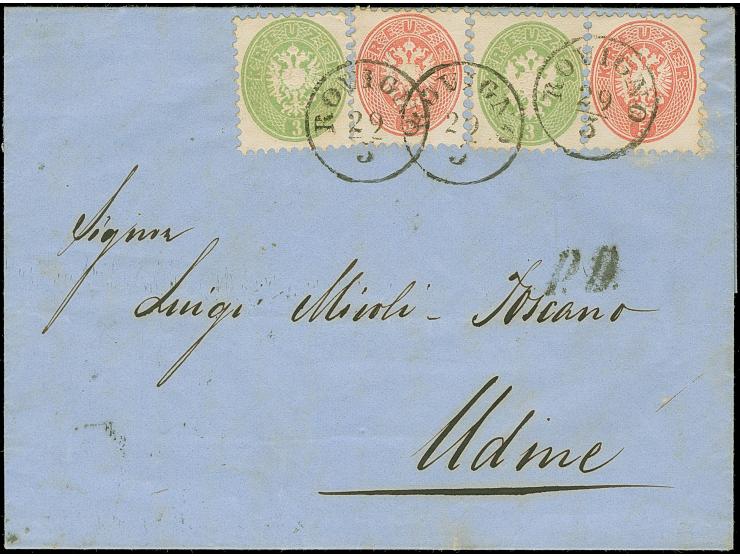 ROVIGO
29
3
ROVIGO
29
3
ROVIGO
29
3
P.D.
Signor
Luigi Micoli - Toscano
Udine